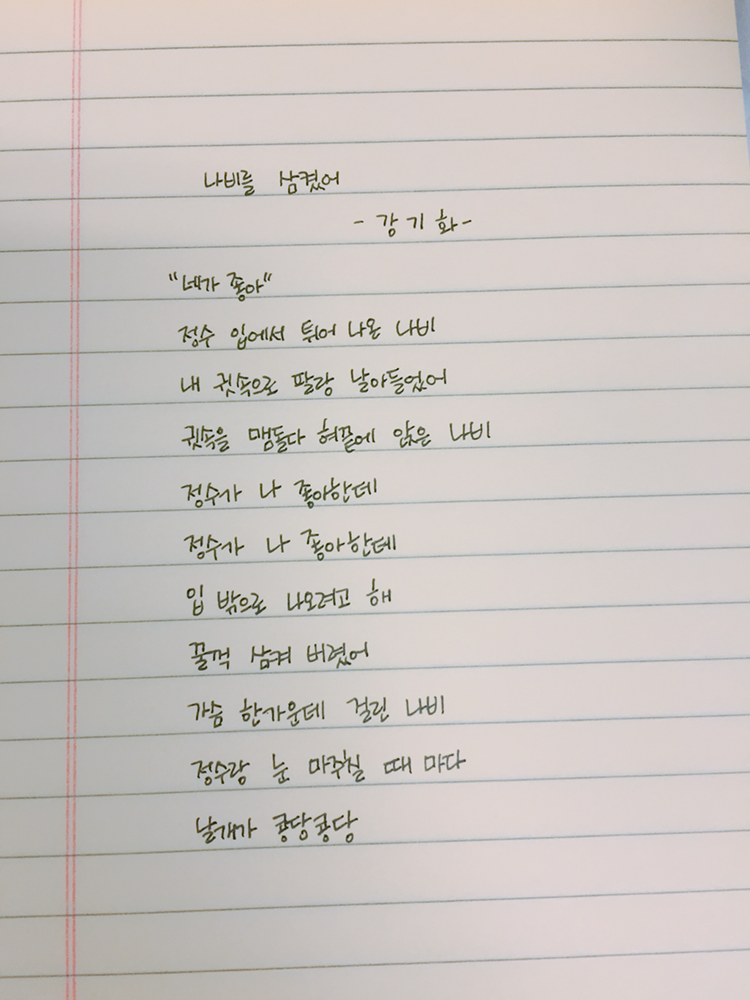 나비를 삼켰어
- 강기화-
"네가 좋아"
정수 입에서 튀어 나온 나비
내 귓속으로 팔랑 날아들었어
귓속을 맴돌다 혀끝에 앉은 나비
정수가 나 좋아한데
정수가 나 좋아한데
입 밖으로 나오려고 해
꿀꺽 삼켜 버렸어
가슴 한가운데 걸린 나비
정수랑 눈 마주칠 때 마다
날개가 콩당콩당